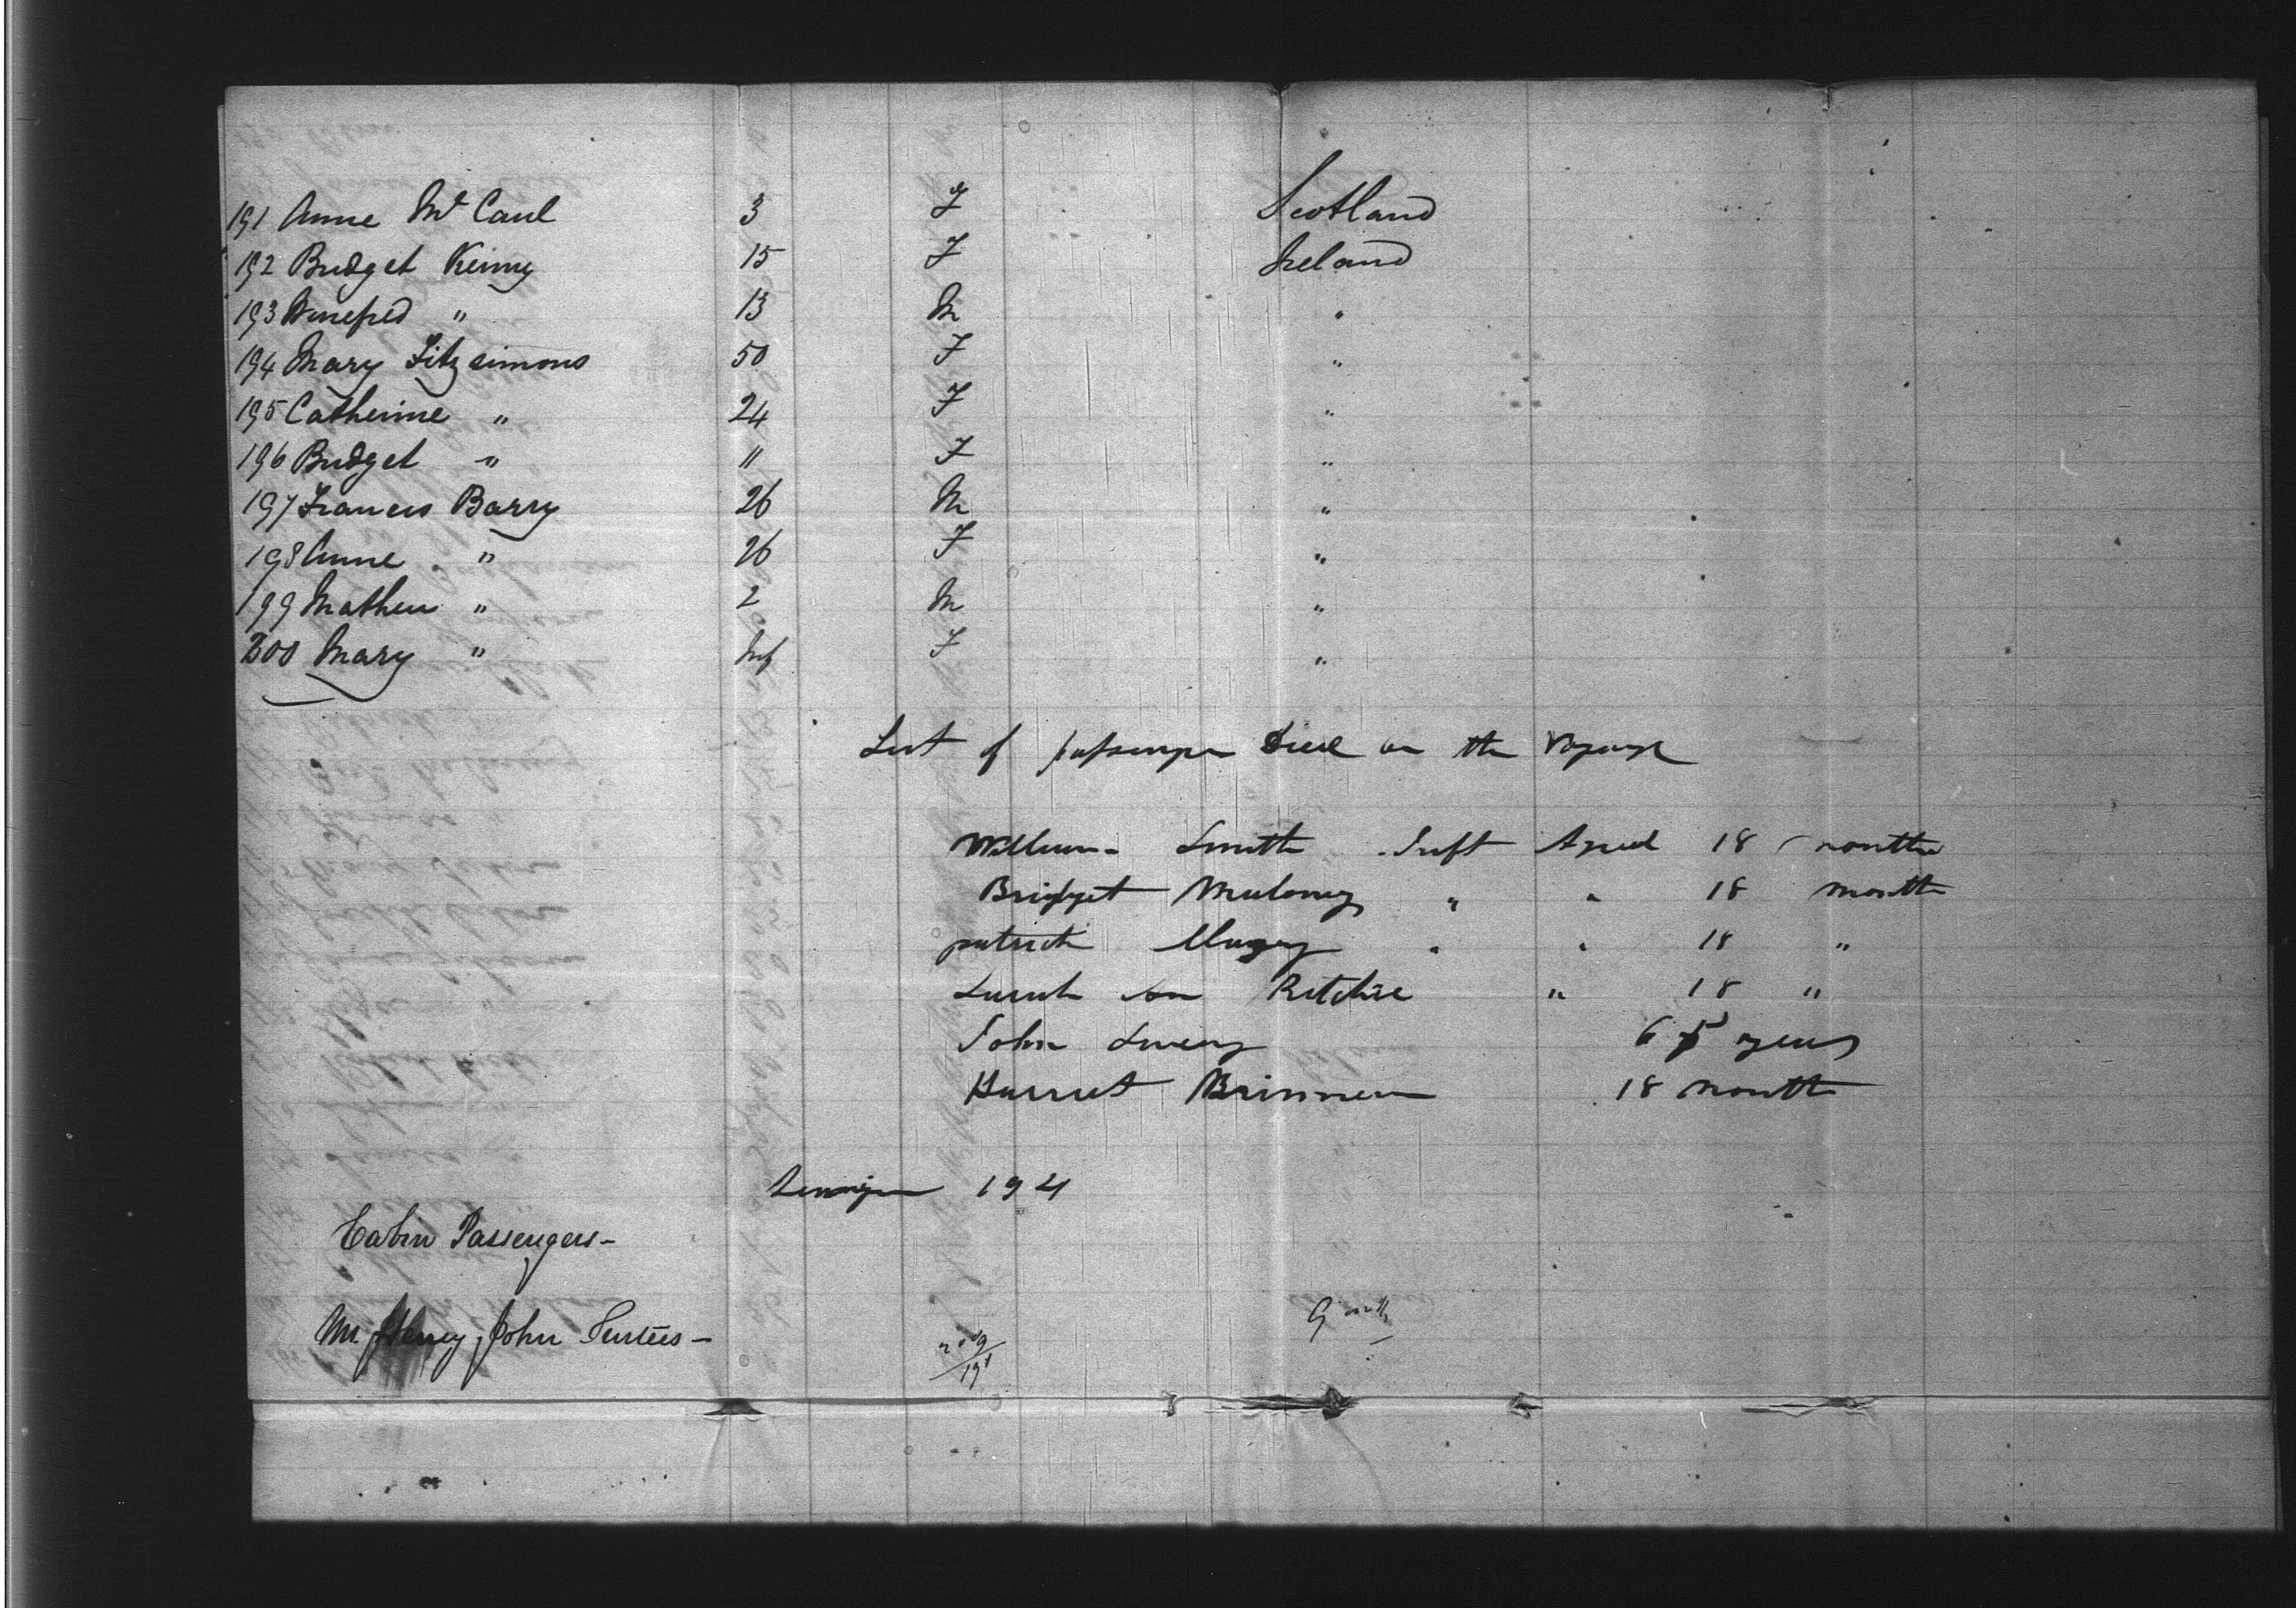 191 Anne Mc Caul 3 F Scotland
192 Bridget Kenny 15 F Ireland
193 Winefred " 13 M "
194 Mary Fitzsimons 50 F "
195 Catherine " 24 F "
196 Bridget " " F "
197 Francis Barry 26 M "
198 Anne " 26 F "
199 Mathew " 2 M "
200 Mary " Inf F "
List of passenger Died on the Voyage
William Smith Inft Aged 18 months
Bridget Muloney " " 18 month
patrick " " 18 "
Sarah Ann Ritchie " 18 "
John 65 years
Harriet Brinnen 18 month
194
Cabin Passengers -
Mr. Henry John Surtees -